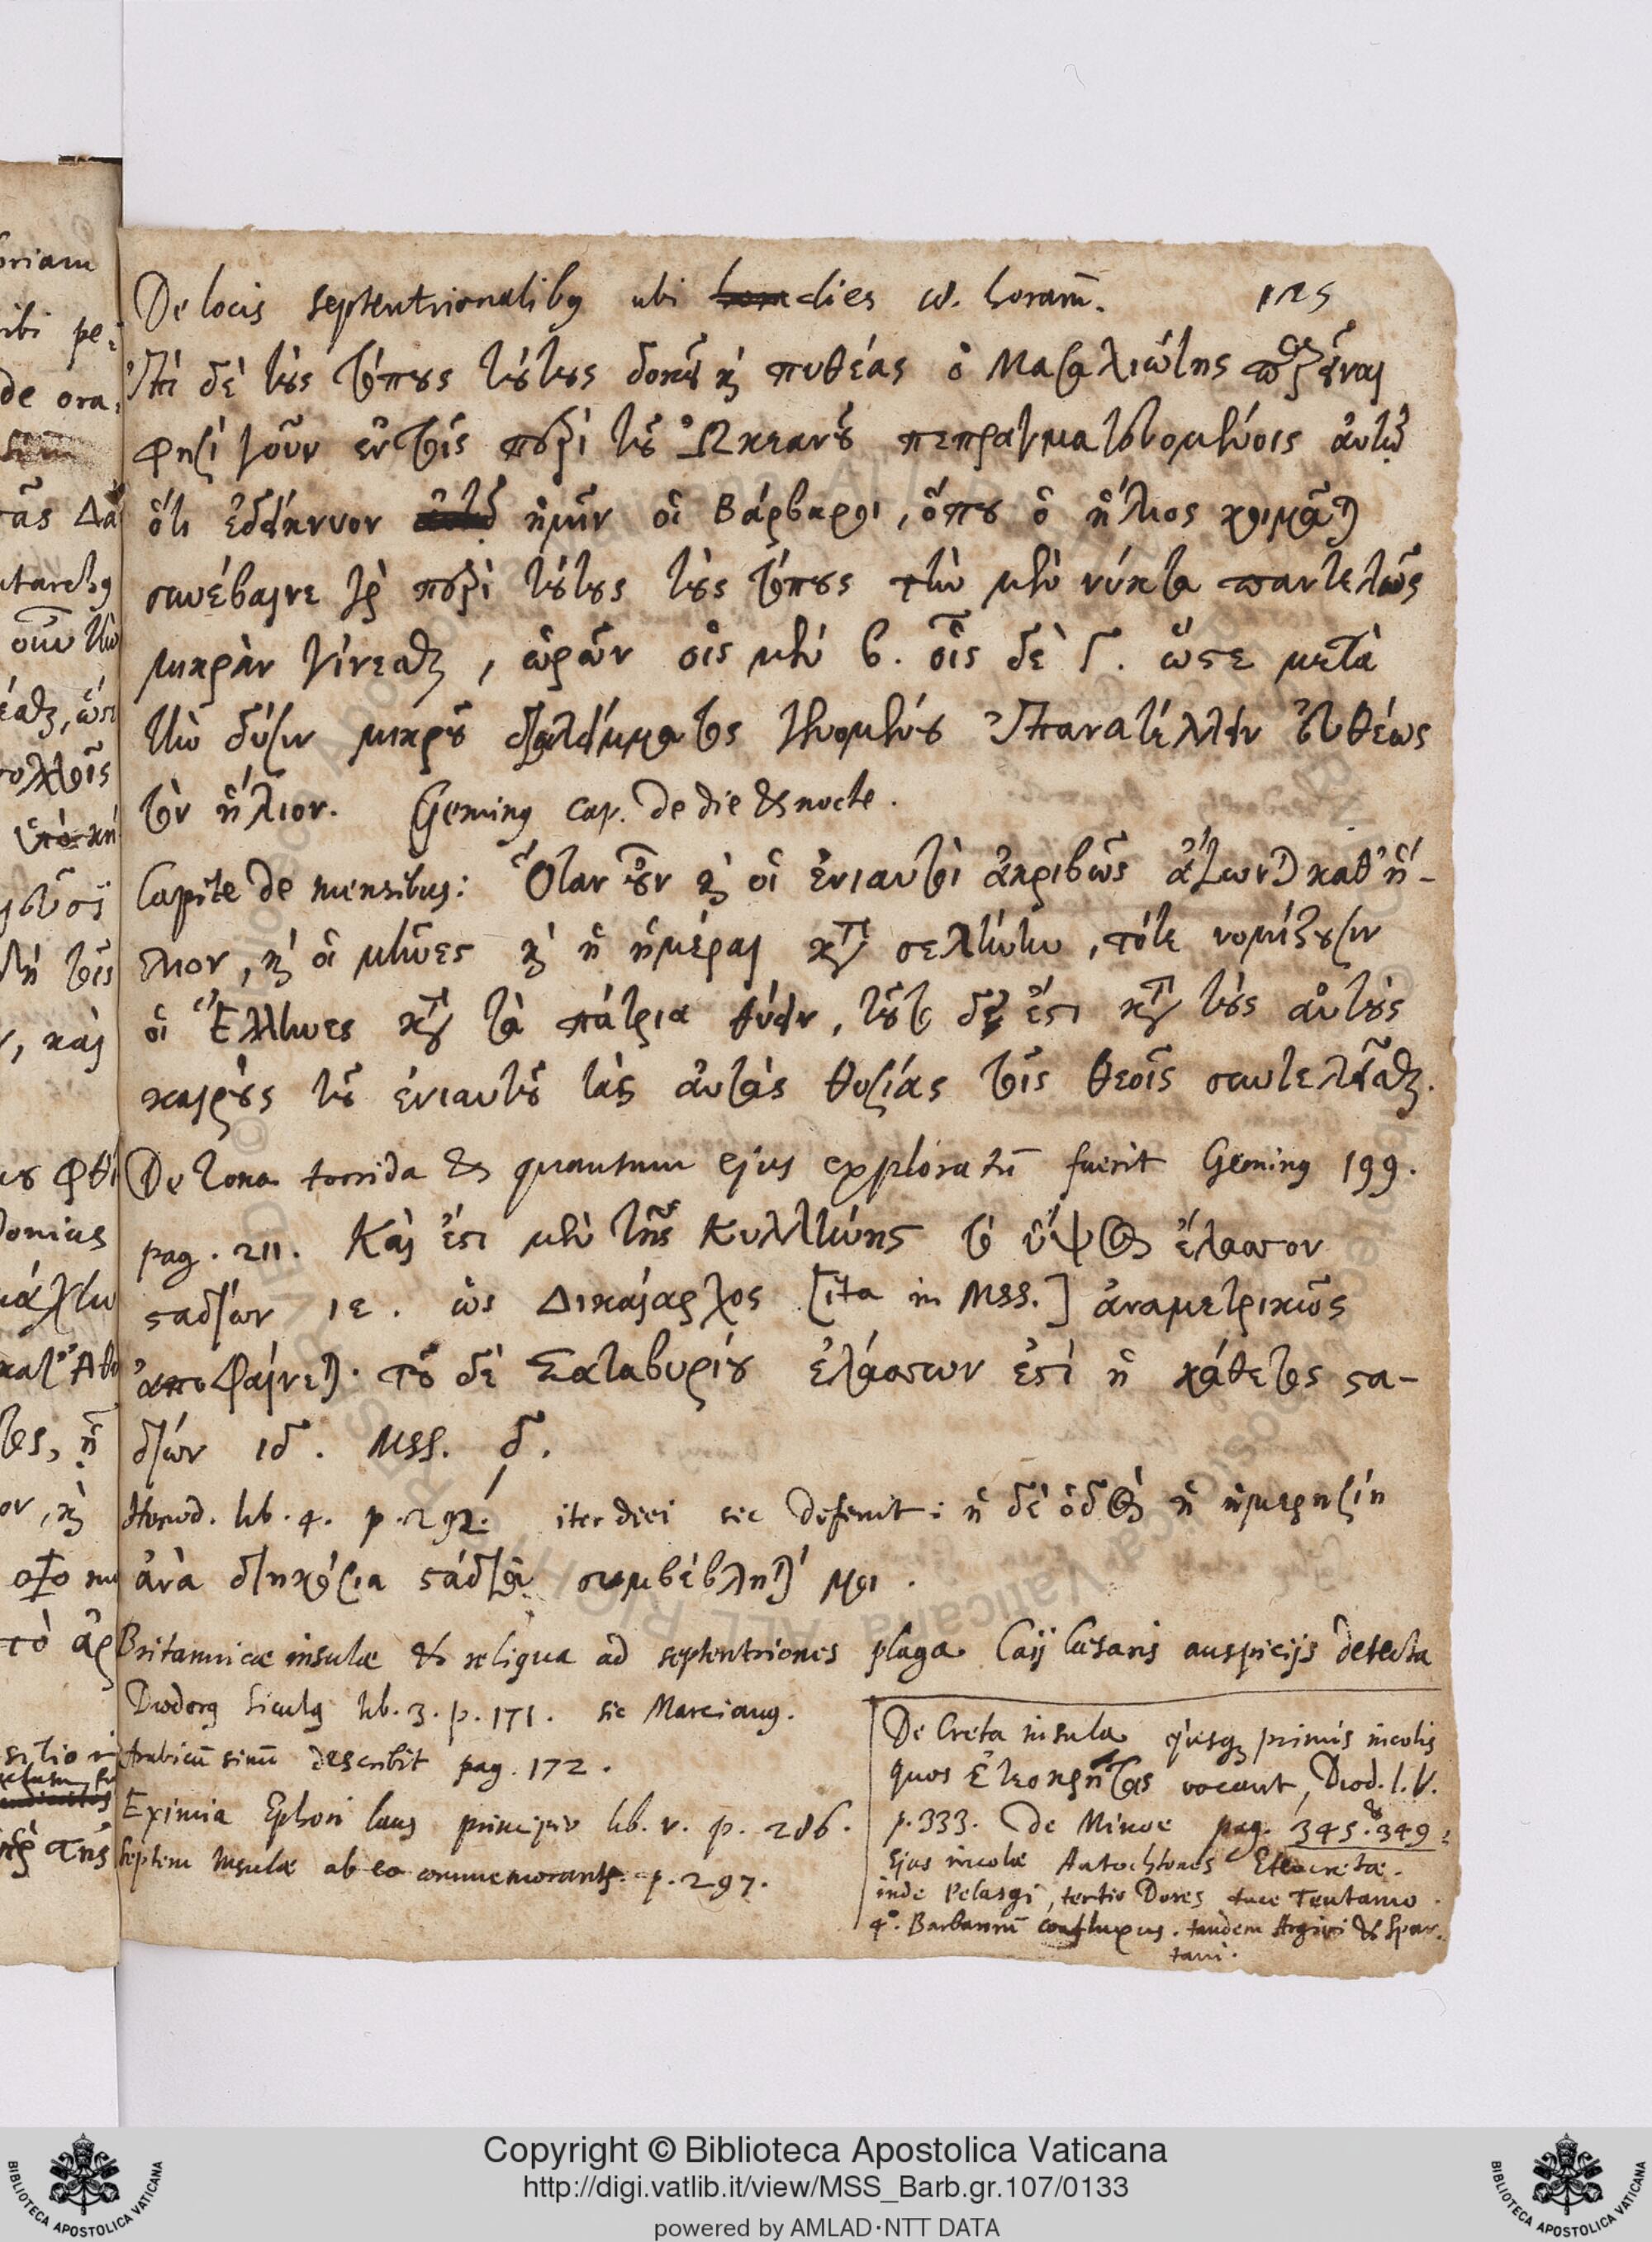 De locis septentrionalibus ubi dies ω. horarum. 125
Ἐπὶ δὲ τοὺς τόπους τούτους δοκεῖ καὶ πυθέας ὁ Μασσαλιώτης παρεῖναι
Φησὶ γοῦν ἐν τοῖς περὶ τοῦ Ὠκεανοῦ πεπραγματευομένοις αὐτῷ
ὅτι ἐδείκνυον ἡμῖν οἱ Βάρβαροι, ὅπου ὁ ἥλιος κοιμᾶται
συνέβαινε γὰρ περὶ τούτους τοὺς τόπους τὴν μὲν νύκτα παντελῶς
μικρὰν γίνεσθαι, ὡρῶν οἷς μὲν β. οἷς δὲ γ. ὥστε μετὰ
τὴν δύσιν μικροῦ διαλείμματος γενομένου ἐπανατέλλειν εὐθέως
τὸν ἥλιον. Geminus cap. de die & nocte.
Capite de mensibus: Ὅταν οὖν καὶ οἱ ἐνιαυτοὶ ἀκριβῶς ἄγωνται καθ' ἥ-
λιον, καὶ οἱ μῆνες καὶ ἡ ἡμέραι κατὰ σελήνην, τότε νομίζουσιν
οἱ Ἕλληνες κατὰ τὰ πάτρια θύειν, τοῦτο δέ ἐστι κατὰ τοὺς αὐτοὺς
καιροὺς τοῦ ἐνιαυτοῦ τὰς αὐτὰς θυσίας τοῖς θεοῖς συντελεῖσθαι.
De Zona torrida & quantum ejus exploratum fuerit Geminus 199.
pag. 211. Καὶ ἔστι μὲν τῆς Κυλλήνης τὸ ὕψος ἔλασσον
σταδίων ιε. ὡς Δικαίαρχος [ita in MSS.] ἀναμετρικῶς
ἀποφαίνεται. τοῦ δὲ Σαταβυρίου ἐλάσσων ἐστὶ ἡ κάθετος στα-
δίων ιδ. MSS. δ.
Herod. lib. 4. p. 292. iter diei sic definit: ἡ δὲ ὁδὸς ἡ ἡμερησίη
ἀνὰ διηκόσια στάδια συμβέβληταί μοι.
Britannicæ insulæ & reliqua ad septentriones plaga Caij Cæsaris auspicijs detecta
Diodorus Siculus lib. 3. p. 171. sic Marcianus.
Arabicum sinum describit pag. 172.
Eximia Ephori laus principio lib. v. p. 286.
Septem Insulæ ab eo commemorantur. p. 297.
De Creta insula ejusque primis incolis
quos Ἐτεοκρῆτας vocant, Diod. l. V.
p. 333. De Minoe pag. 345. & 349.
Ejus incolæ Autochtones Eteocretæ.
inde Pelasgi, tertio Dores duce Teutamo.
4°. Barbarum confluxus. tandem Argivi & Spar-
tani.